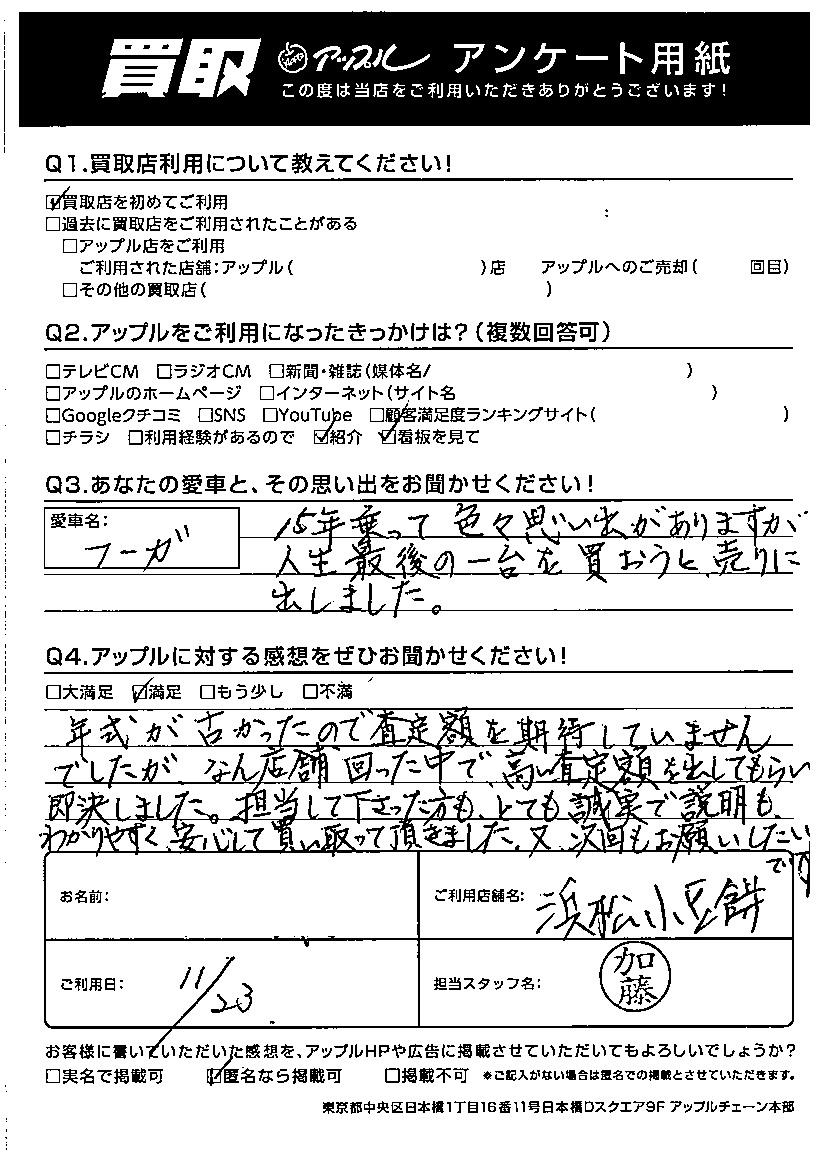 買取 アップル アンケート用紙
この度は当店をご利用いただきありがとうございます!
Q1.買取店利用について教えてください!
☑買取店を初めてご利用
□過去に買取店をご利用されたことがある
□アップル店をご利用
ご利用された店舗:アップル( )店 アップルへのご売却( 回目)
□その他の買取店( )
Q2.アップルをご利用になったきっかけは?(複数回答可)
□テレビCM □ラジオCM □新聞・雑誌(媒体名/ )
□アップルのホームページ □インターネット(サイト名 )
□Googleクチコミ □SNS □YouTube □顧客満足度ランキングサイト( )
□チラシ □利用経験があるので ☑紹介 ☑看板を見て
Q3.あなたの愛車と、その思い出をお聞かせください!
愛車名:
フーガ
15年乗って色々思い出がありますが
人生最後の一台を買おうと、売りに
出しました。
Q4.アップルに対する感想をぜひお聞かせください!
□大満足 ☑満足 □もう少し □不満
年式が古かったので査定額を期待していません
でしたが、なん店舗回った中で、高い査定額を出してもらい
即決しました。担当して下さった方も、とても誠実で説明も、
わかりやすく、安心して買い取って頂きました。又、次回もお願いしたい
です
お名前: ご利用店舗名: 浜松小豆餅
ご利用日: 11/23 担当スタッフ名: 加藤
お客様に書いていただいた感想を、アップルHPや広告に掲載させていただいてもよろしいでしょうか?
□実名で掲載可 ☑匿名なら掲載可 □掲載不可 ※ご記入がない場合は匿名での掲載とさせていただきます。
東京都中央区日本橋1丁目16番11号日本橋Dスクエア9F アップルチェーン本部